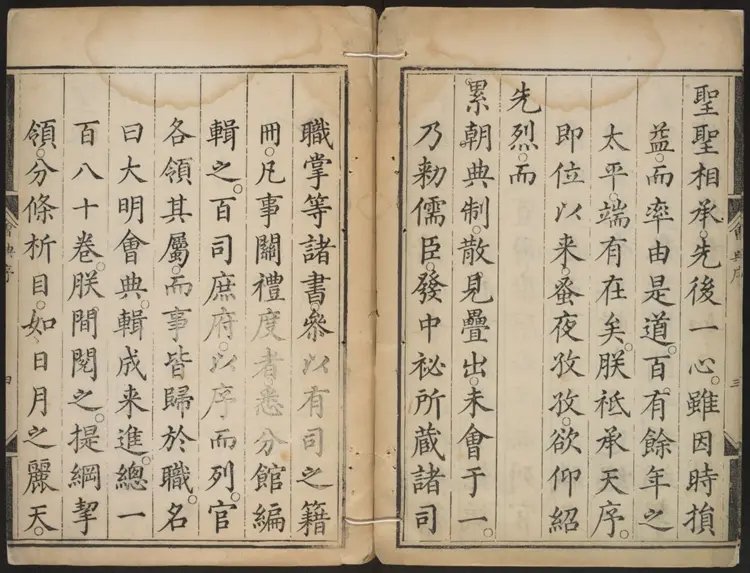 聖聖相承。先後一心。雖因時損
益。而率由是道。百有餘年之
太平。端有在矣。朕祗承天序。
即位以来。蚤夜孜孜。欲仰紹
先烈。而
累朝典制。散見疊出。未會于一。
乃勑儒臣。發中祕所蔵諸司
職掌等諸書。叅以有司之籍
冊。凡事關禮度者。悉分館編
輯之。百司庶府。以序而列。官
各領其屬。而事皆歸於職。名
曰大明會典。輯成来進。總一
百八十卷。朕間閱之。提綱挈
領。分條析目。如日月之麗天。
會典序
三
會典序
四